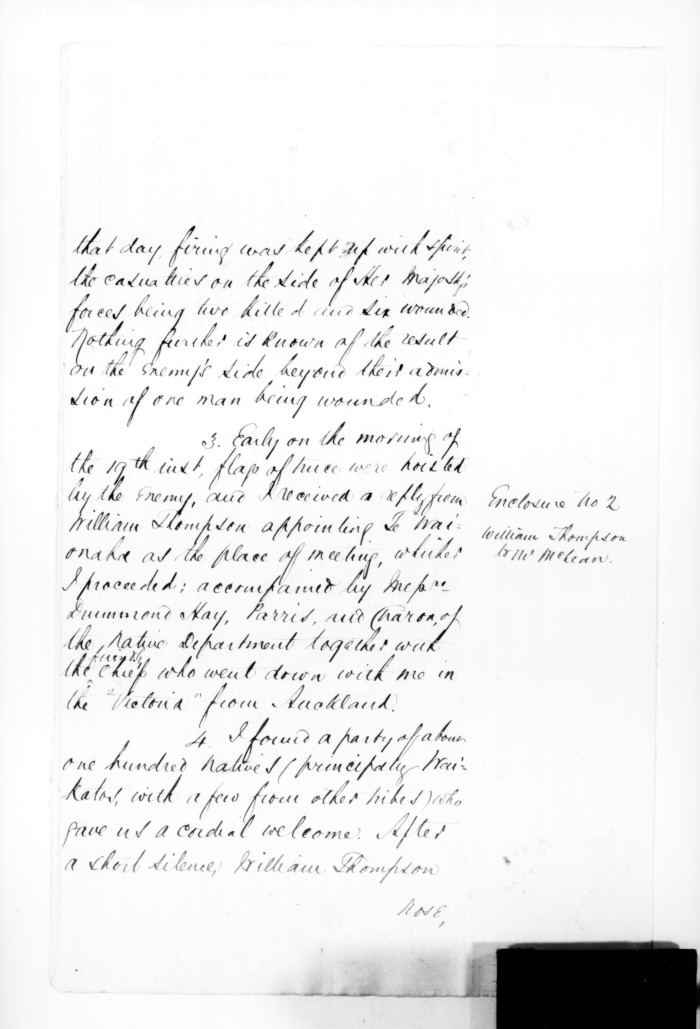 that day, firing was kept up with spirit,
the casualties on the side of Her Majesty's
forces being two killed and six wounded.
Nothing further is known of the result
on the Enemy's side beyond their admis-
sion of one man being wounded.
3. Early on the morning of
the 19th inst, flags of truce were hoisted
by the Enemy, and I received a reply from
William Thompson appointing Te Wai-
onaha as the place of meeting, whither
I proceeded; accompanied by Messrs
Drummond Hay, Parris, and Charon, of
the Native Department together with
the friendly Chiefs who went down with me in
the "Victoria" from Auckland.
4. I found a party of about
one hundred natives (principally Wai-
katos, with a few from other tribes) who
gave us a cordial welcome. After
a short silence, William Thompson
rose,
Enclosure No 2
William Thompson
to Mr McLean.